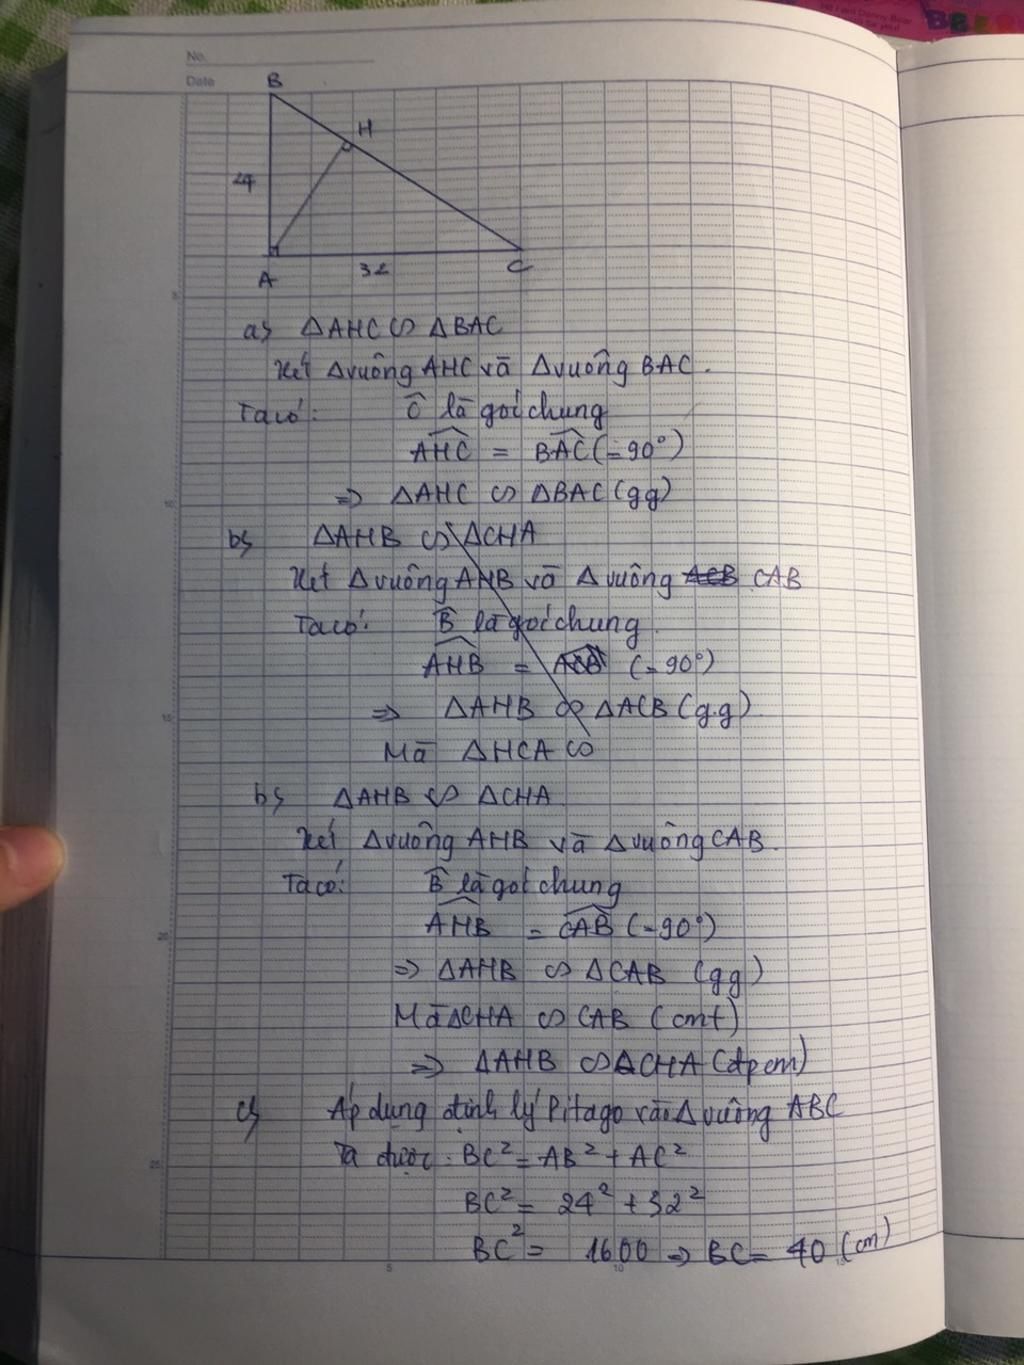 No.
Date
B
H
24
A
32
C
a) ΔAHC ∽ ΔBAC
Xét Δvuông AHC và Δvuông BAC.
Ta có: Ĉ là góc chung
AHC = BAC (=90°)
=> ΔAHC ∽ ΔBAC (gg)
b) ΔAHB ∽ ΔCHA
Xét Δvuông AHB và Δvuông ACB CAB
Ta có: B̂ là góc chung.
AHB = (=90°)
=> ΔAHB ∽ ΔACB (g.g)
Mà ΔHCA ∽
b) ΔAHB ∽ ΔCHA
Xét Δvuông AHB và Δvuông CAB.
Ta có: B̂ là góc chung
AHB = CAB (=90°)
=> ΔAHB ∽ ΔCAB (gg)
Mà ΔCHA ∽ CAB (cmt)
=> ΔAHB ∽ ΔCHA (đpcm)
c) Áp dụng định lý Pitago vào Δvuông ABC
Ta được: BC² = AB² + AC²
BC² = 24² + 32²
BC² = 1600 => BC = 40 (cm)
5
10
15
20
25
5
10
15